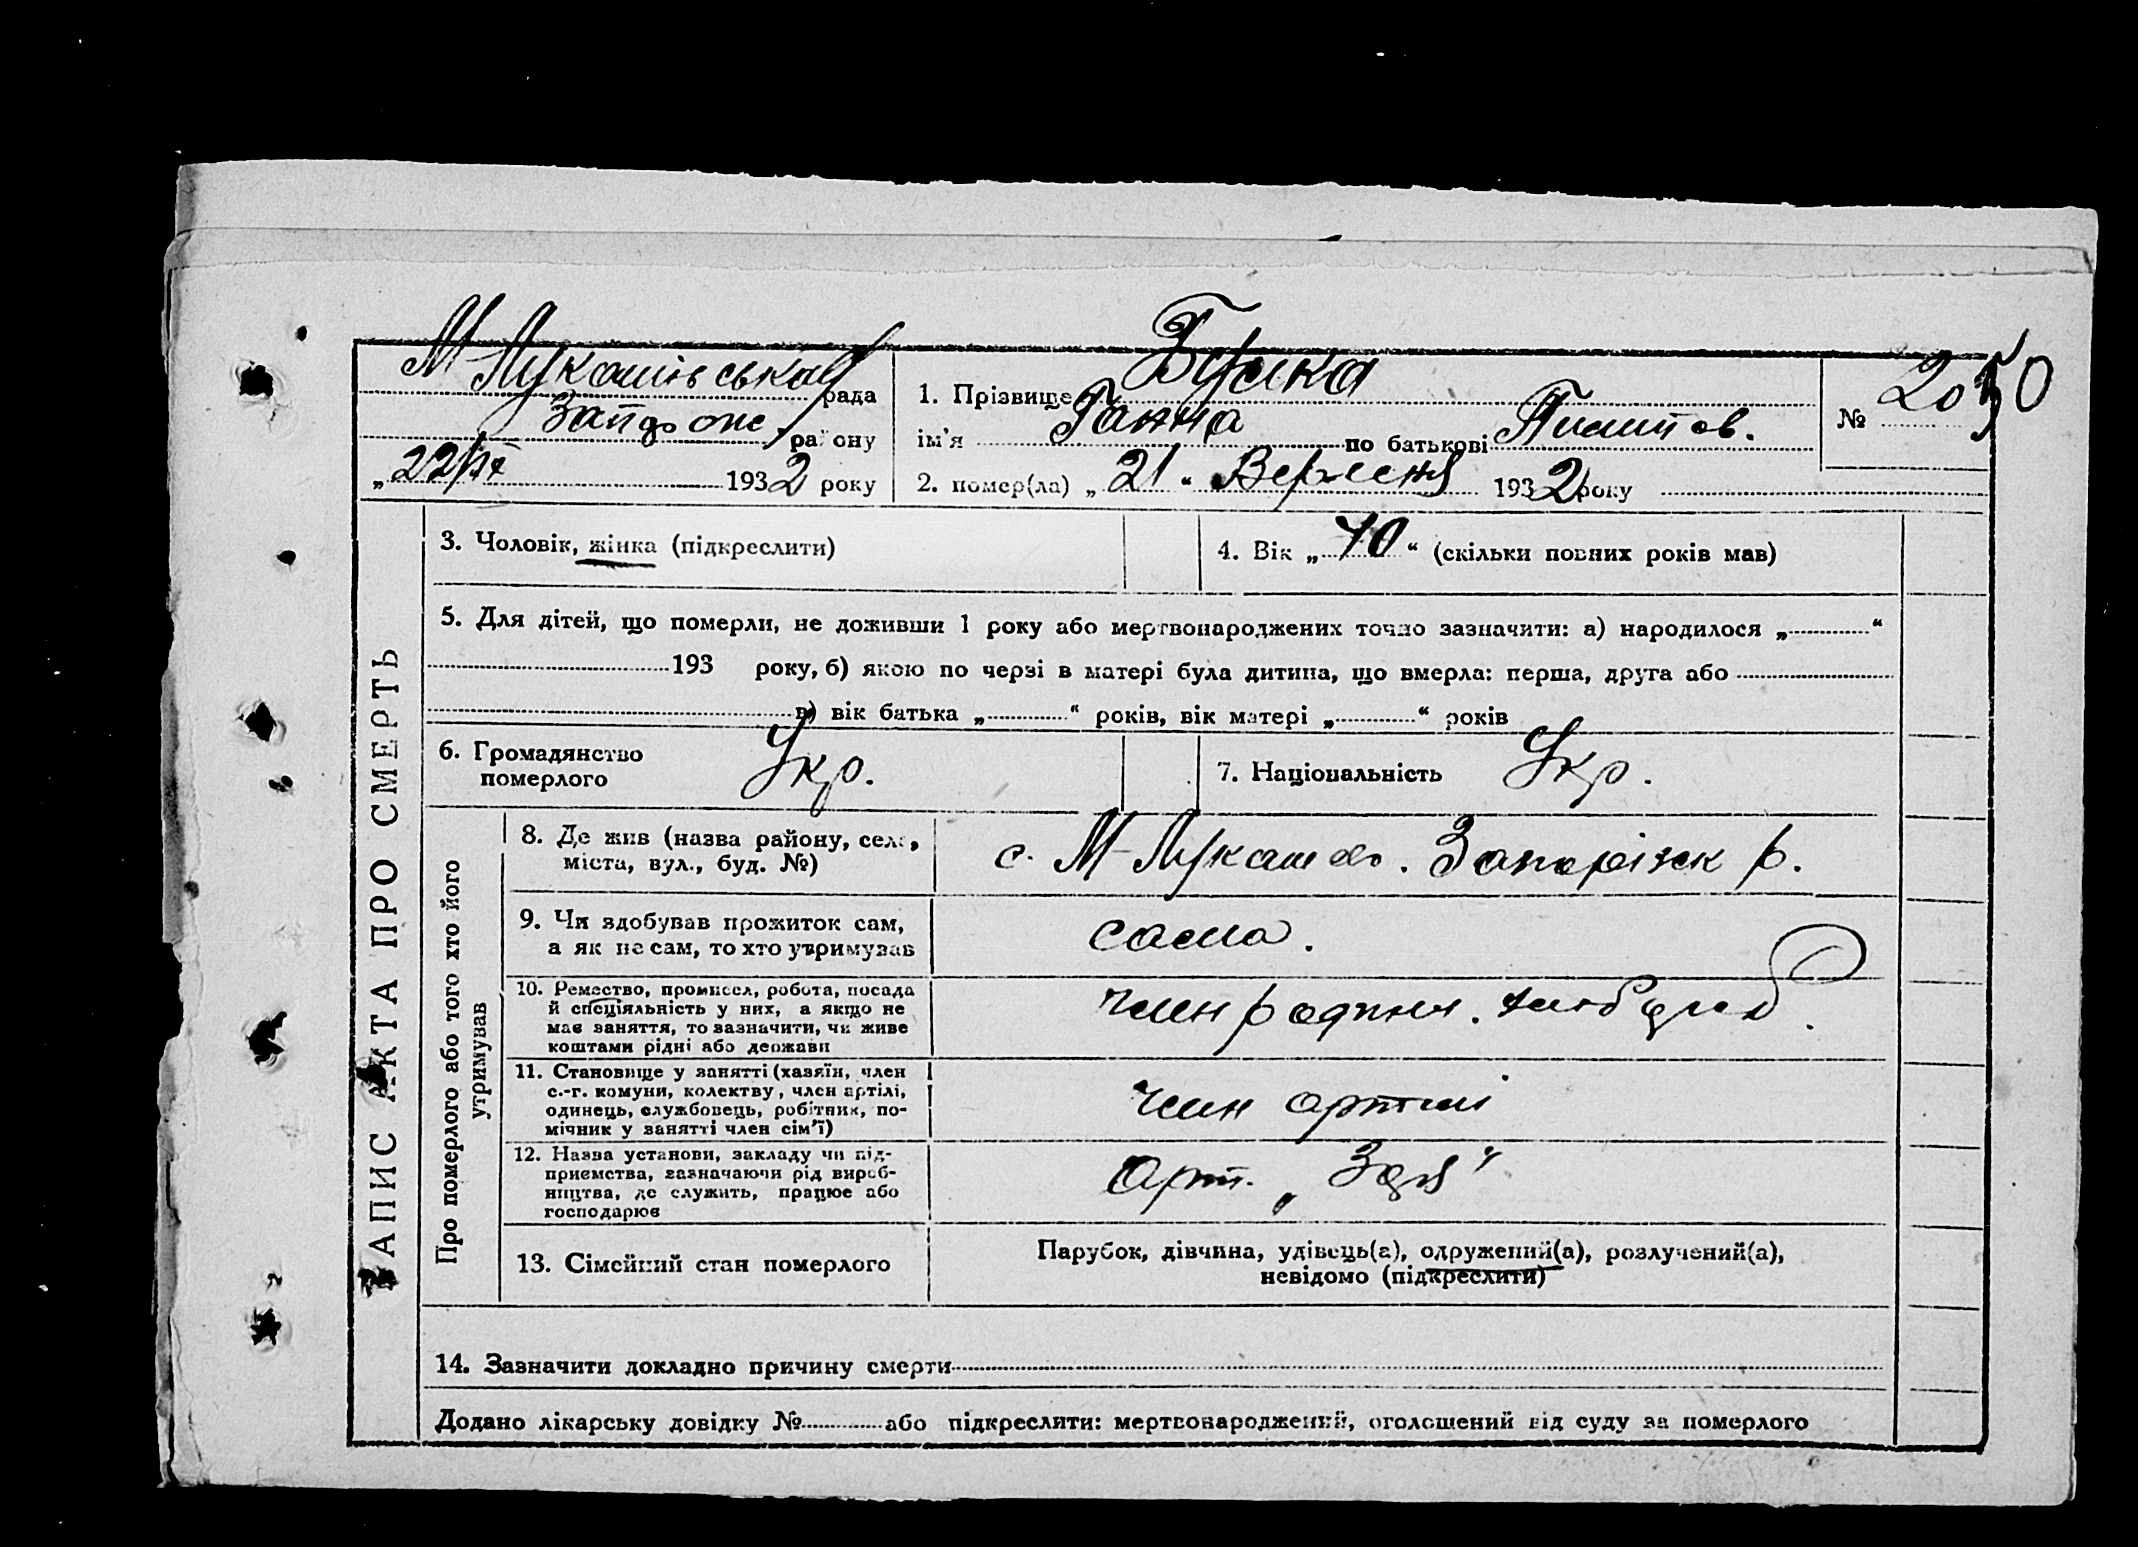 М-Лукашівська рада
району
„22/IX 1932 року
1. Прізвище
ім'я Ганна по батькові
2. помер(ла) „21“ Вересня 1932 року
№ 20 50
ЗАПИС АКТА ПРО СМЕРТЬ
3. Чоловік, жінка (підкреслити)
4. Вік „70“ (скільки повних років мав)
5. Для дітей, що померли, не доживши 1 року або мертвонароджених точно зазначити: а) народилося „ “
193 року, б) якою по черзі в матері була дитина, що вмерла: перша, друга або
в) вік батька „ “ років, вік матері „ “ років
6. Громадянство
померлого
Укр.
7. Національність Укр.
Про померлого або того хто його
утримував
8. Де жив (назва району, села,
міста, вул., буд. №)
с. М-Лукашево. Запоріжж р.
9. Чи здобував прожиток сам,
а як не сам, то хто утримував
сама.
10. Ремество, промисел, робота, посада
й спеціяльність у них, а якщо не
має заняття, то зазначити, чи живе
коштами рідні або держави
член родини. хлібороб.
11. Становище у занятті (хазяїн, член
с.-г. комуни, колектву, член артілі,
одинець, службовець, робітник, по-
мічник у занятті член сім'ї)
член артілі
12. Назва установи, закладу чи під-
приємства, зазначаючи рід вироб-
ництва, де служить, працює або
господарює
Арт. „Зоря“
13. Сімейний стан померлого
Парубок, дівчина, удівець(а), одружений(а), розлучений(а),
невідомо (підкреслити)
14. Зазначити докладно причину смерти
Додано лікарську довідку № або підкреслити: мертвонароджений, оголошений від суду за померлого